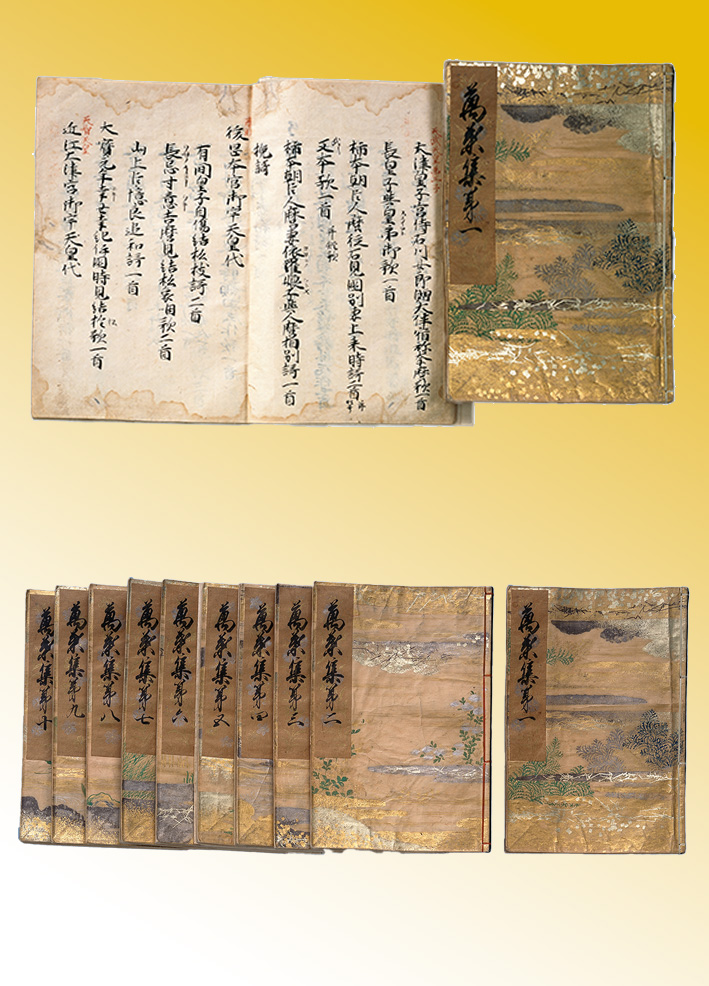 萬葉集第一
大津皇子宮侍石川女郎贈大伴宿祢奈麿歌一首
長皇子與皇弟御歌一首
柿本朝臣人麿従石見國別妻上来時謌二首
或本歌一首 并短歌
柿本朝臣人麿妻依羅娘子與人麿相別謌一首
挽謌
後崗本宮御宇天皇代
有間皇子自傷結松枝謌二首
長忌寸意吉麿見結松哀咽歌二首
山上臣憶良追和謌一首
大寶元年辛丑幸紀伊國時見結松歌一首
近江大津宮御宇天皇代
萬葉集第一
萬葉集第二
萬葉集第三
萬葉集第四
萬葉集第五
萬葉集第六
萬葉集第七
萬葉集第八
萬葉集第九
萬葉集第十